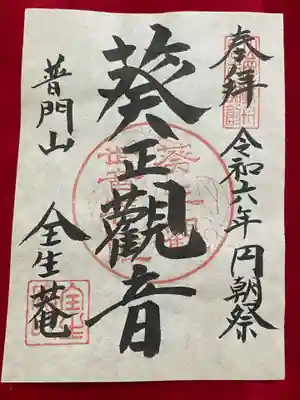 奉拝
令和六年円朝祭
葵正觀音
普門山
全生菴